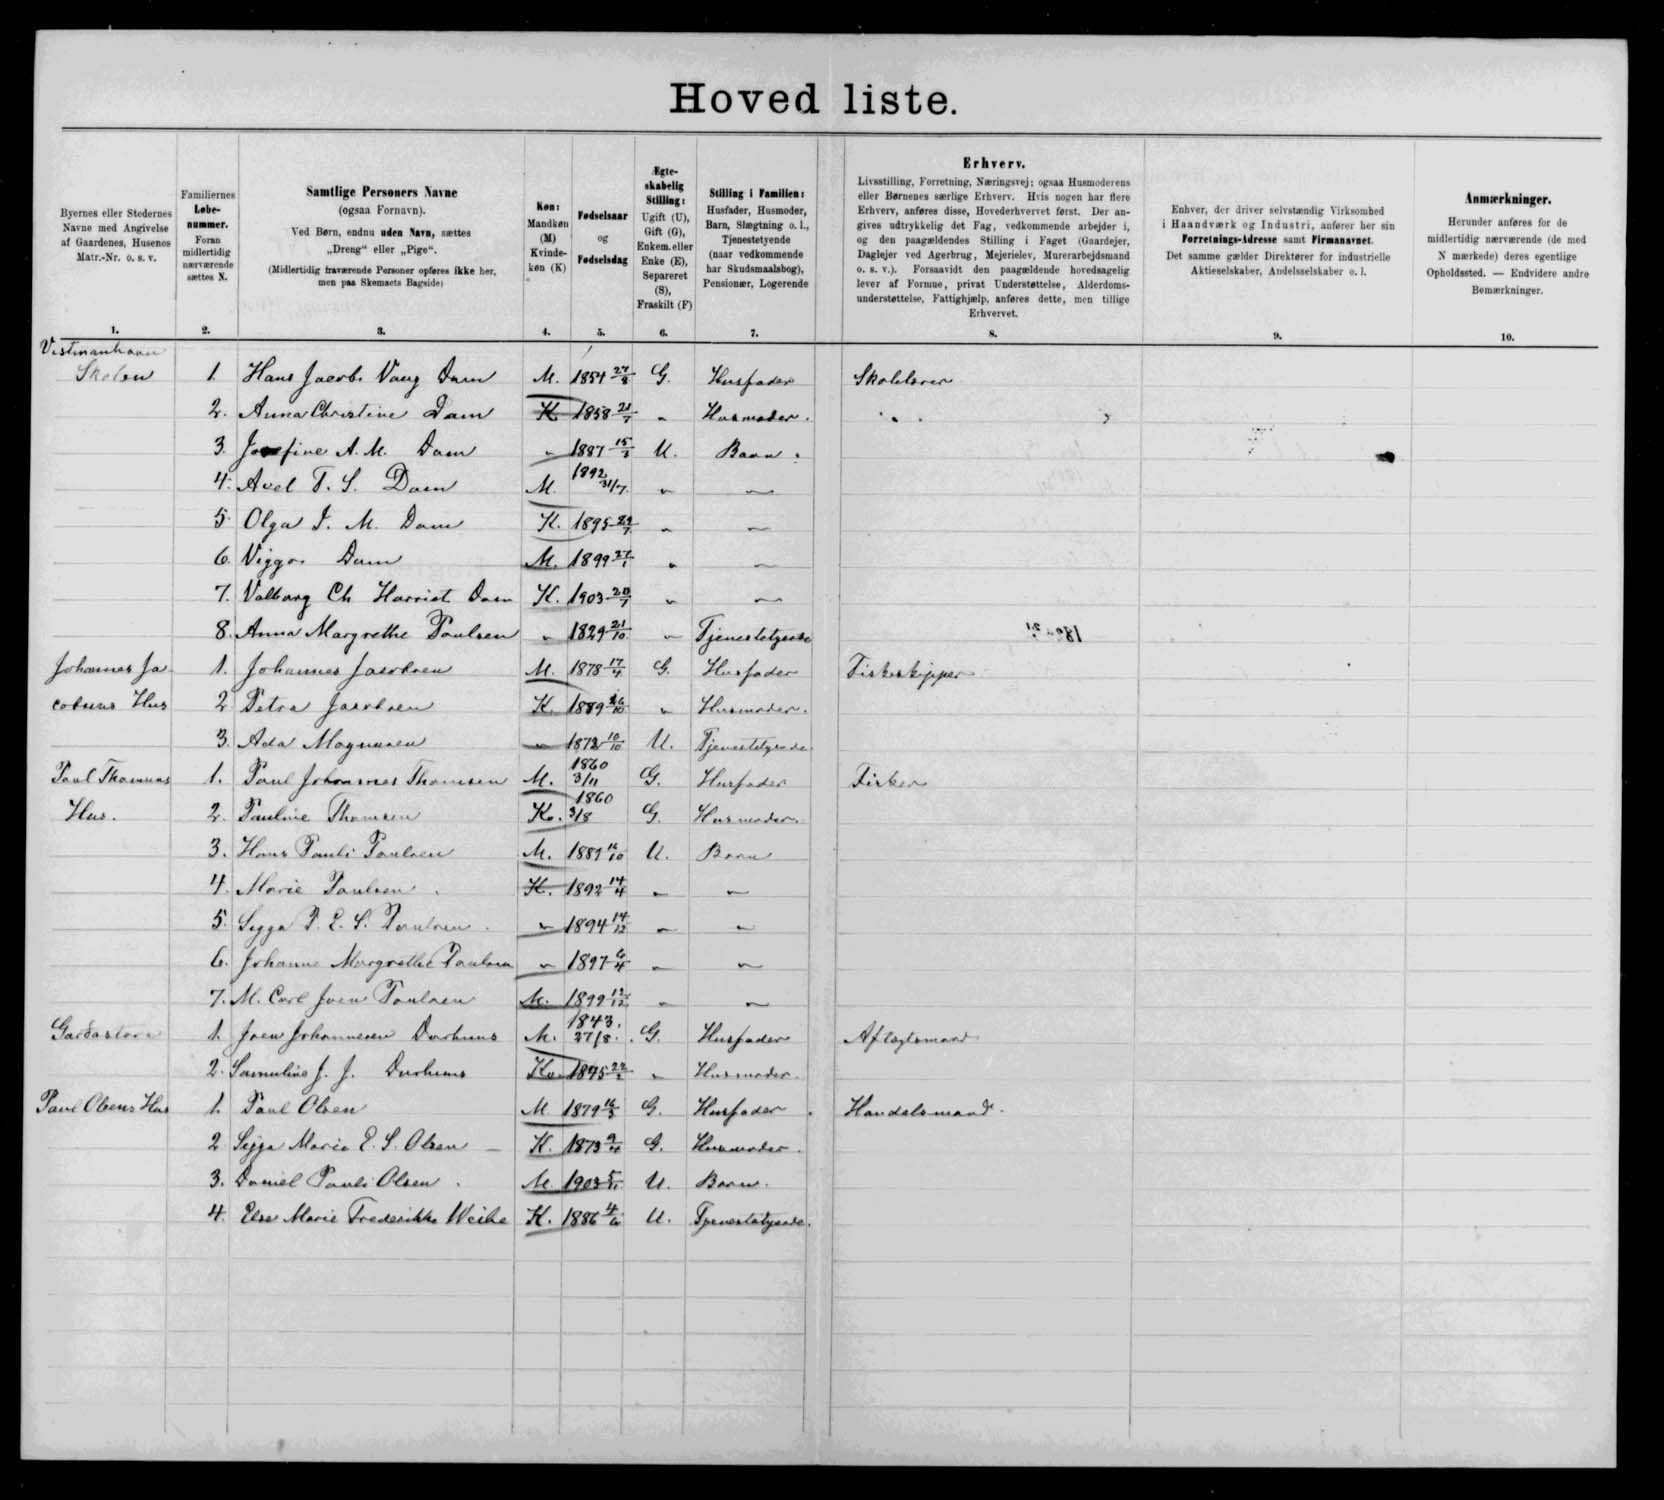 Hoved liste.
Byernes eller Stedernes
Navne med Angivelse
af Gaardenes, Husenes
Matr.-Nr. o. s. v.
1.
Familiernes
Løbe-
nummer.
Foran
midlertidig
nærværende
sættes N.
2.
Samtlige Personers Navne
(ogsaa Fornavn).
Ved Børn, endnu uden Navn, sættes
„Dreng“ eller „Pige“.
(Midlertidig fraværende Personer opføres ikke her,
men paa Skemaets Bagside)
3.
Køn:
Mandkøn
(M)
Kvinde-
køn (K)
4.
Fødselsaar
og
Fødselsdag
5.
Ægte-
skabelig
Stilling:
Ugift (U),
Gift (G),
Enkem. eller
Enke (E),
Separeret
(S),
Fraskilt (F)
6.
Stilling i Familien:
Husfader, Husmoder,
Barn, Slægtning o. l.,
Tjenestetyende
(naar vedkommende
har Skudsmaalsbog),
Pensionær, Logerende
7.
Erhverv.
Livsstilling, Forretning, Næringsvej; ogsaa Husmoderens
eller Børnenes særlige Erhverv. Hvis nogen har flere
Erhverv, anføres disse, Hovederhvervet først. Der an-
gives udtrykkelig det Fag, vedkommende arbejder i,
og den paagældendes Stilling i Faget (Gaardejer,
Daglejer ved Agerbrug, Mejerielev, Murerarbejdsmand
o. s. v.). Forsaavidt den paagældende hovedsagelig
lever af Formue, privat Understøttelse, Alderdoms-
understøttelse, Fattighjælp, anføres dette, men tillige
Erhvervet.
8.
Enhver, der driver selvstændig Virksomhed
i Haandværk og Industri, anfører her sin
Forretnings-Adresse samt Firmanavnet.
Det samme gælder Direktører for industrielle
Aktieselskaber, Andelsselskaber o. l.
9.
Anmærkninger.
Herunder anføres for de
midlertidig nærværende (de med
N mærkede) deres egentlige
Opholdssted. — Endvidere andre
Bemærkninger.
10.
Vestmanhavn
Skolen 1. Hans Jacob Vang Dam M. 1854 27/8 G. Husfader Skolelærer
2. Anna Christine Dam K. 1858 21/7 " Husmoder. " "
3. Josefine A. M. Dam " 1887 15/3 U. Barn.
4. Axel T. S. Dam M. 1892 31/7 " "
5. Olga J. M. Dam K. 1895 29/7 " "
6. Viggo Dam M. 1899 27/1 " "
7. Valborg Ch Harriet Dam K. 1903 20/7 " "
8. Anna Margrethe Poulsen " 1829 21/10 " Tjenestetyende
Johannes Ja- 1. Johannes Jacobsen M. 1878 17/4 G. Husfader Fiskeskipper
cobsens Hus 2 Petra Jacobsen K. 1889 26/10 " Husmoder.
3. Ada Magnusen " 1872 10/10 U. Tjenestetyende
Poul Thomsens 1. Poul Johannes Thomsen M. 1860 3/11 G. Husfader Fisker
Hus. 2. Pauline Thomsen K. 1860 3/8 G. Husmoder.
3. Hans Pauli Poulsen M. 1889 16/10 U. Barn
4. Marie Poulsen. K. 1892 14/4 " "
5. Sigga P. E. S. Poulsen. " 1894 14/12 " "
6. Johanne Margrethe Poulsen " 1897 6/4 " "
7. M. Carl Joen Poulsen M. 1899 12/12 " "
Gardastova 1. Joen Johannesen Durhuus M. 1843. 27/8. G. Husfader Aftægtsmand
2. Samuline J. J. Durhuus K. 1845 22/2 " Husmoder.
Poul Olsens Hus 1. Poul Olsen M. 1879 16/3 G. Husfader Handelsmand.
2 Sigga Marie E. S. Olsen – K. 1873 9/4 G. Husmoder.
3. Daniel Pauli Olsen. M. 1903 5/11 U. Barn.
4. Else Marie Frederikke Weihe K. 1886 4/6 U. Tjenestetyende.